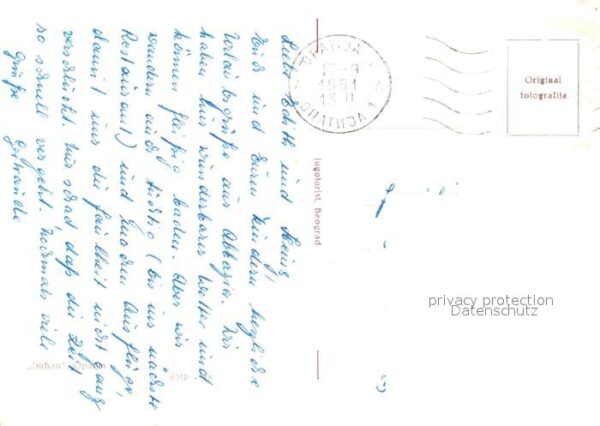 Liebe Edith und Heinz,
Euch und Euren Kindern herzliche
Urlaubsgrüße aus Abbazia. Wir
haben hier wunderbares Wetter und
können fleißig baden. Aber wir
wandern auch tüchtig (bis ins nächste
Restaurant) und machen Ausflüge,
damit uns die Faulheit nicht ganz
verschluckt. Nur schad daß die Zeit
so schnell vergeht. Nochmals viele
Grüße
OPATIJA
1961
Original
fotografija
Jugoturist, Beograd
privacy protection
Datenschutz